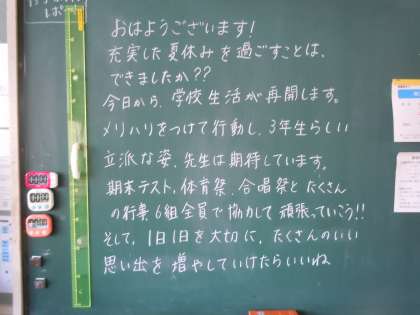 おはようございます!
充実した夏休みを過ごすことは、
できましたか??
今日から、学校生活が再開します。
メリハリをつけて行動し、3年生らしい
立派な姿、先生は期待しています。
期末テスト、体育祭、合唱祭とたくさん
の行事、6組全員で協力して頑張っていこう!!
そして、1日1日を大切に、たくさんのいい
思い出を増やしていけたらいいね